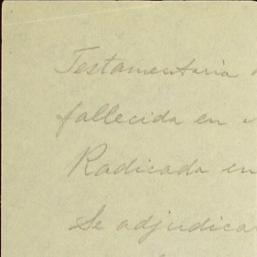 Testamentaria
fallecida en
Radicada en
Se adjudica